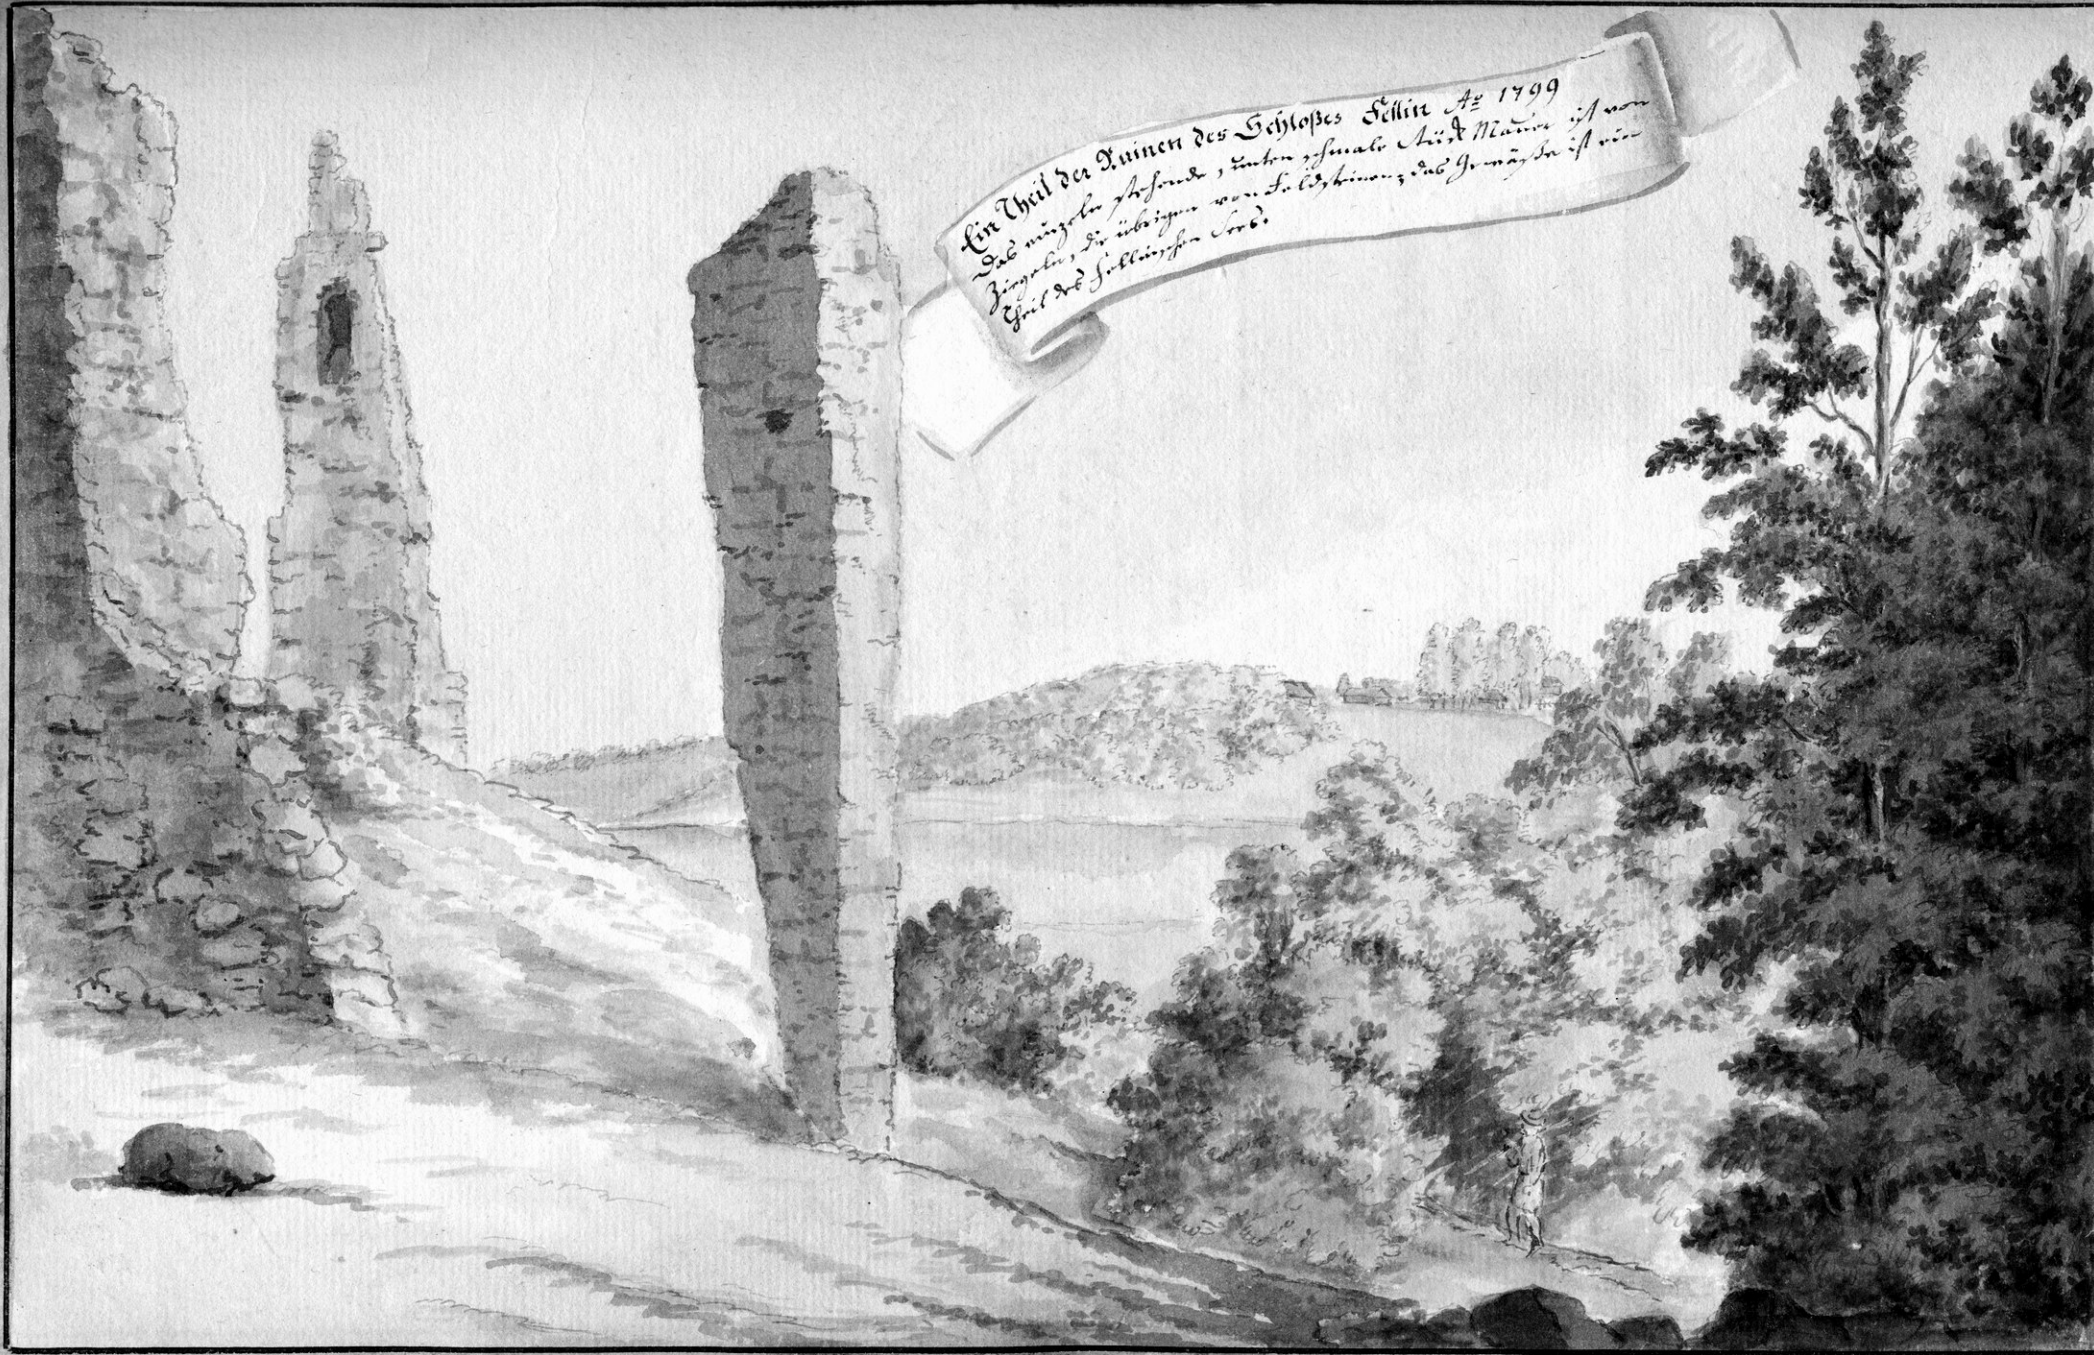 Ein Theil der Ruinen des Schloßes Fellin Aº 1799
Das einzeln stehende, unten schmale Stück Mauer ist von
Ziegeln, die übrigen von Feldsteinen, das Gewäßer ist ein
Theil des Fellinschen Sees.